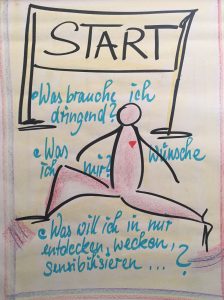 START
• Was brauche ich
dringend?
• Was wünsche
ich mir?
• Was will ich in mir
entdecken, wecken,
sensibilisieren ...?